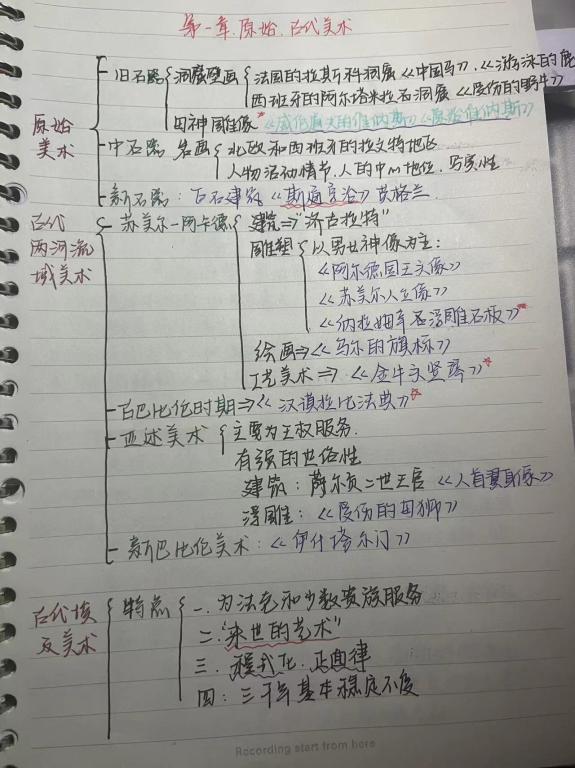 第一章.原始、古代美术
原始美术
旧石器 洞窟壁画 法国的拉斯科洞窟《中国马》、《游泳的鹿》
西班牙的阿尔塔米拉石洞窟《受伤的野牛》
母神雕像《威伦道夫的维纳斯》《原始维纳斯》
中石器 岩画 北欧和西班牙的拉文特地区
人物活动情节、人的中心地位、写实性
新石器：巨石建筑《斯通亨治》英格兰
古代两河流域美术
苏美尔-阿卡德 建筑⇒"济古拉特"
雕塑 以男女神像为主：
《阿尔德国王头像》
《苏美尔人立像》
《纳拉姆辛石浮雕石板》
绘画⇒《乌尔的旗标》
工艺美术⇒《金牛头竖琴》
古巴比伦时期⇒《汉谟拉比法典》
亚述美术 主要为王权服务.
有强的世俗性
建筑：萨尔贡二世王宫《人首翼身像》
浮雕：《受伤的母狮》
新巴比伦美术：《伊什塔尔门》
古代埃及美术
特点 一.为法老和少数贵族服务
二."来世的艺术"
三.程式化.正面律
四：三千年基本稳定不变
Recording start from here